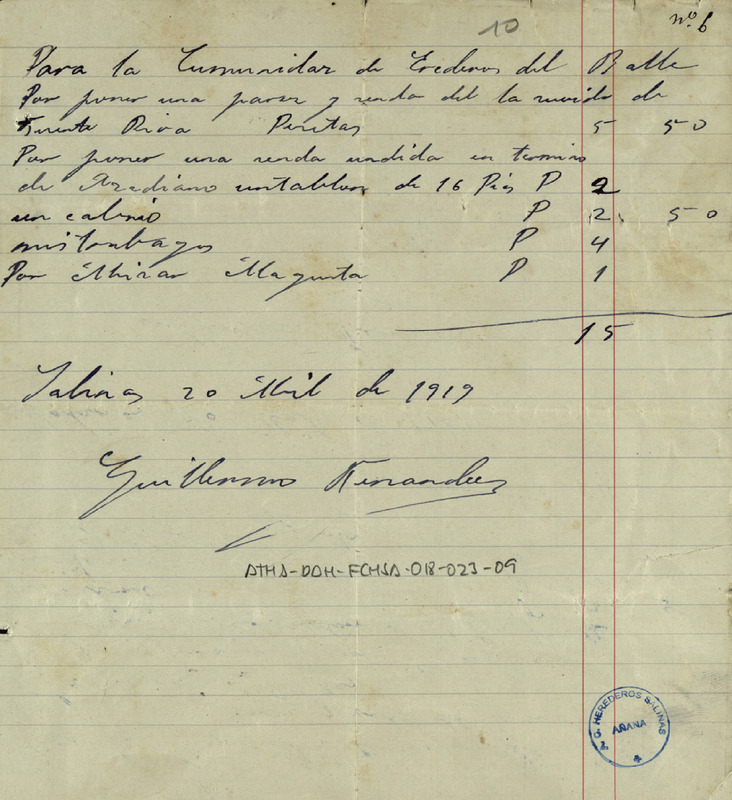 10
nº 6
Para la Cumunidar de Erederos del Balle
Por poner una parar y renda del la de
Fuente Riva Pesetas 5 50
Por poner una renda undida en termino
de Arediano untablon de 16 Pies P 2
un cabrio P 2 50
P 4
Por P 1
15
Salinas 20 Abril de 1919
Guillermo Fernandez
ATHA-DAH-FCHSA-018-023-09
C. HEREDEROS SALINAS
AÑANA